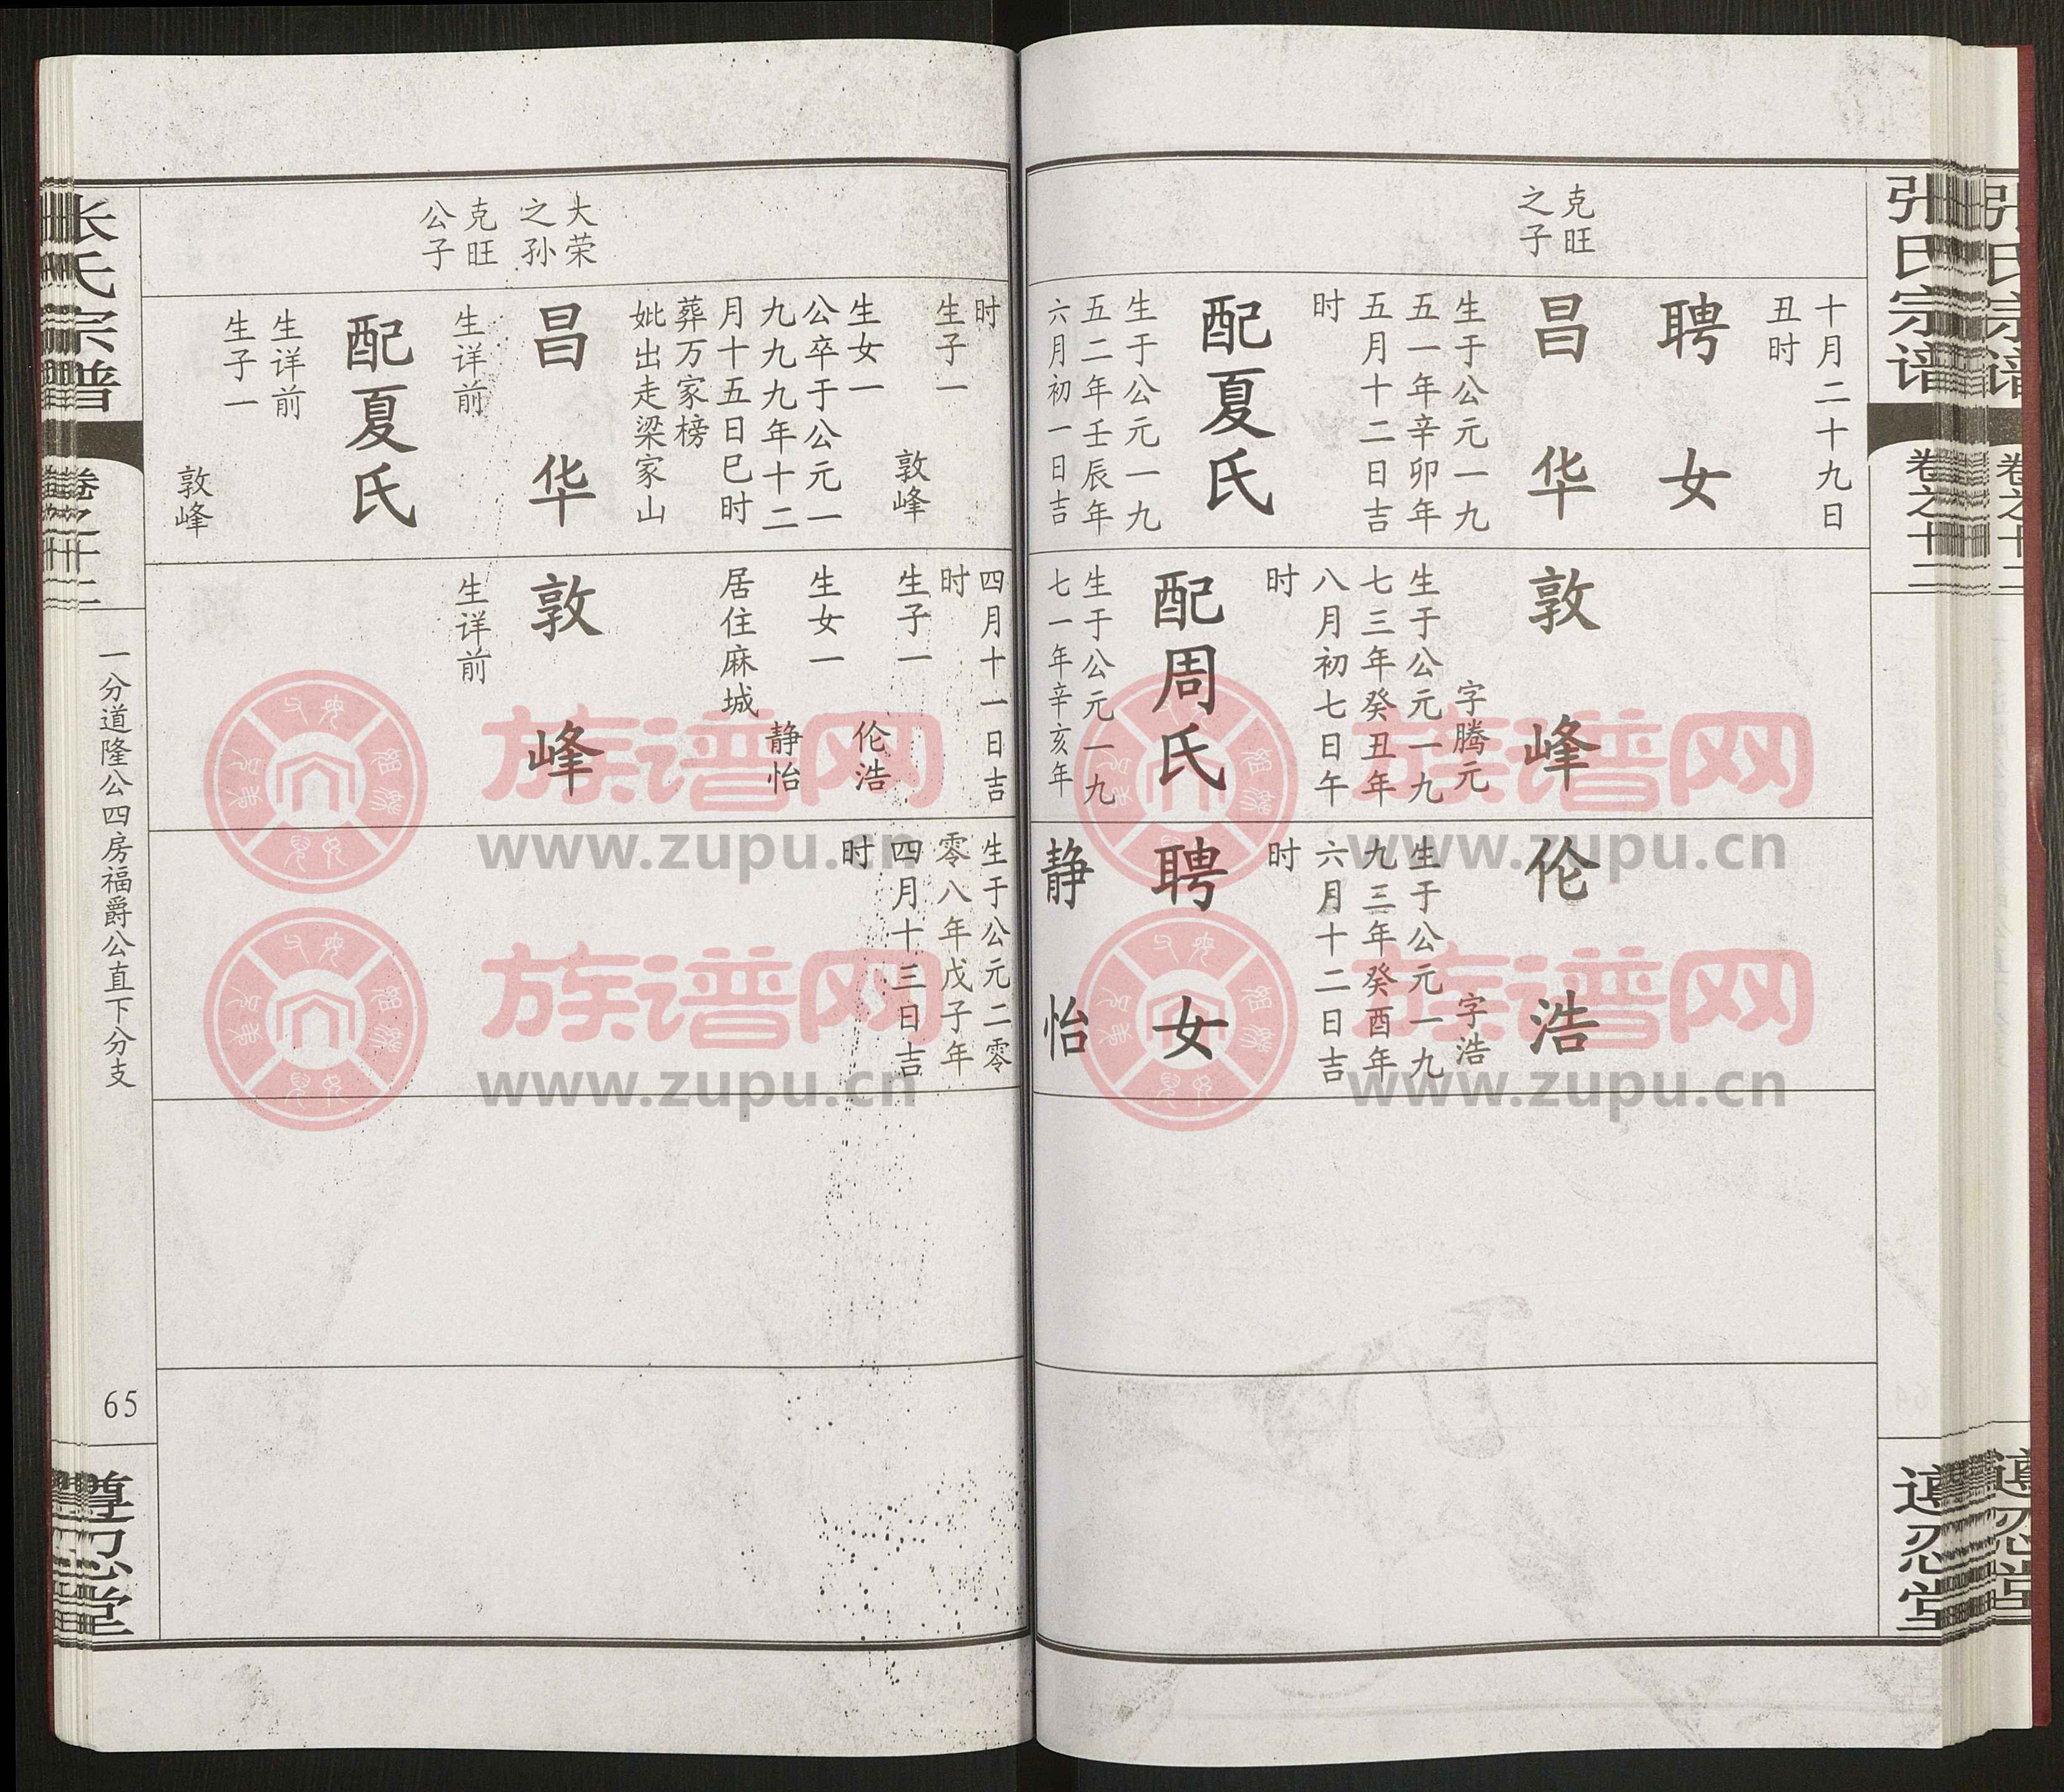 张氏宗谱
卷之十二
遵忍堂
克旺
之子
十月二十九日
丑时
聘女
昌华
生于公元一九
五一年辛卯年
五月十二日吉
时
配夏氏
生于公元一九
五二年壬辰年
六月初一日吉
敦峰
字腾元
生于公元一九
七三年癸丑年
八月初七日午
时
配周氏
生于公元一九
七一年辛亥年
伦浩
字浩
生于公元一九
九三年癸酉年
六月十二日吉
时
聘女
静怡
大荣
之孙
克旺
公子
时
生子一
敦峰
生女一
公卒于公元一
九九九年十二
月十五日巳时
葬万家榜
妣出走梁家山
昌华
生详前
配夏氏
生详前
生子一
敦峰
四月十一日吉
时
生子一
伦浩
生女一
静怡
居住麻城
敦峰
生详前
生于公元二零
零八年戊子年
四月十三日吉
时
张氏宗谱
卷之十二
一分道隆公四房福爵公直下分支
65
遵忍堂
族谱网
www.zupu.cn
族谱网
www.zupu.cn
族谱网
www.zupu.cn
族谱网
www.zupu.cn